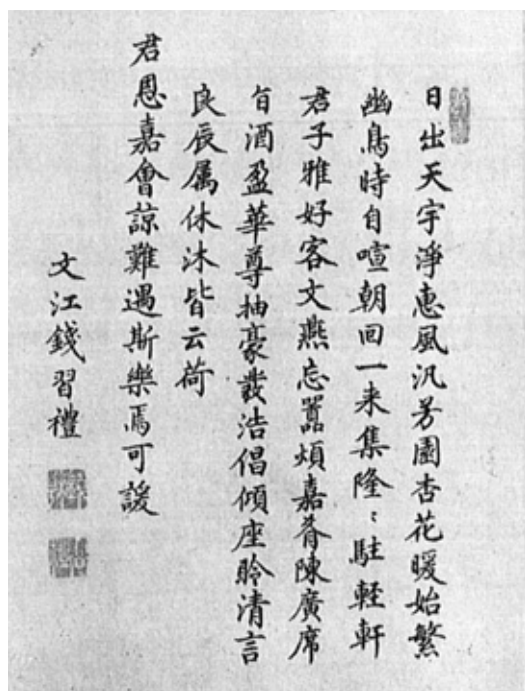 日出天宇淨惠風汎芳園杏花暖始繁
幽鳥時自喧朝回一来集隆〻駐軽軒
君子雅好客文燕忘囂煩嘉肴陳廣席
旨酒盈華尊抽豪發浩倡傾座聆清言
良辰属休沐皆云荷
君恩嘉會諒難遇斯樂焉可諼
文江錢習禮